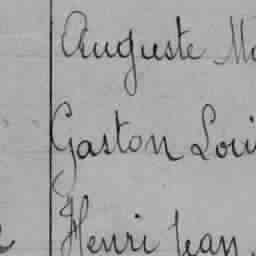 Auguste
Gaston
Henri Jean